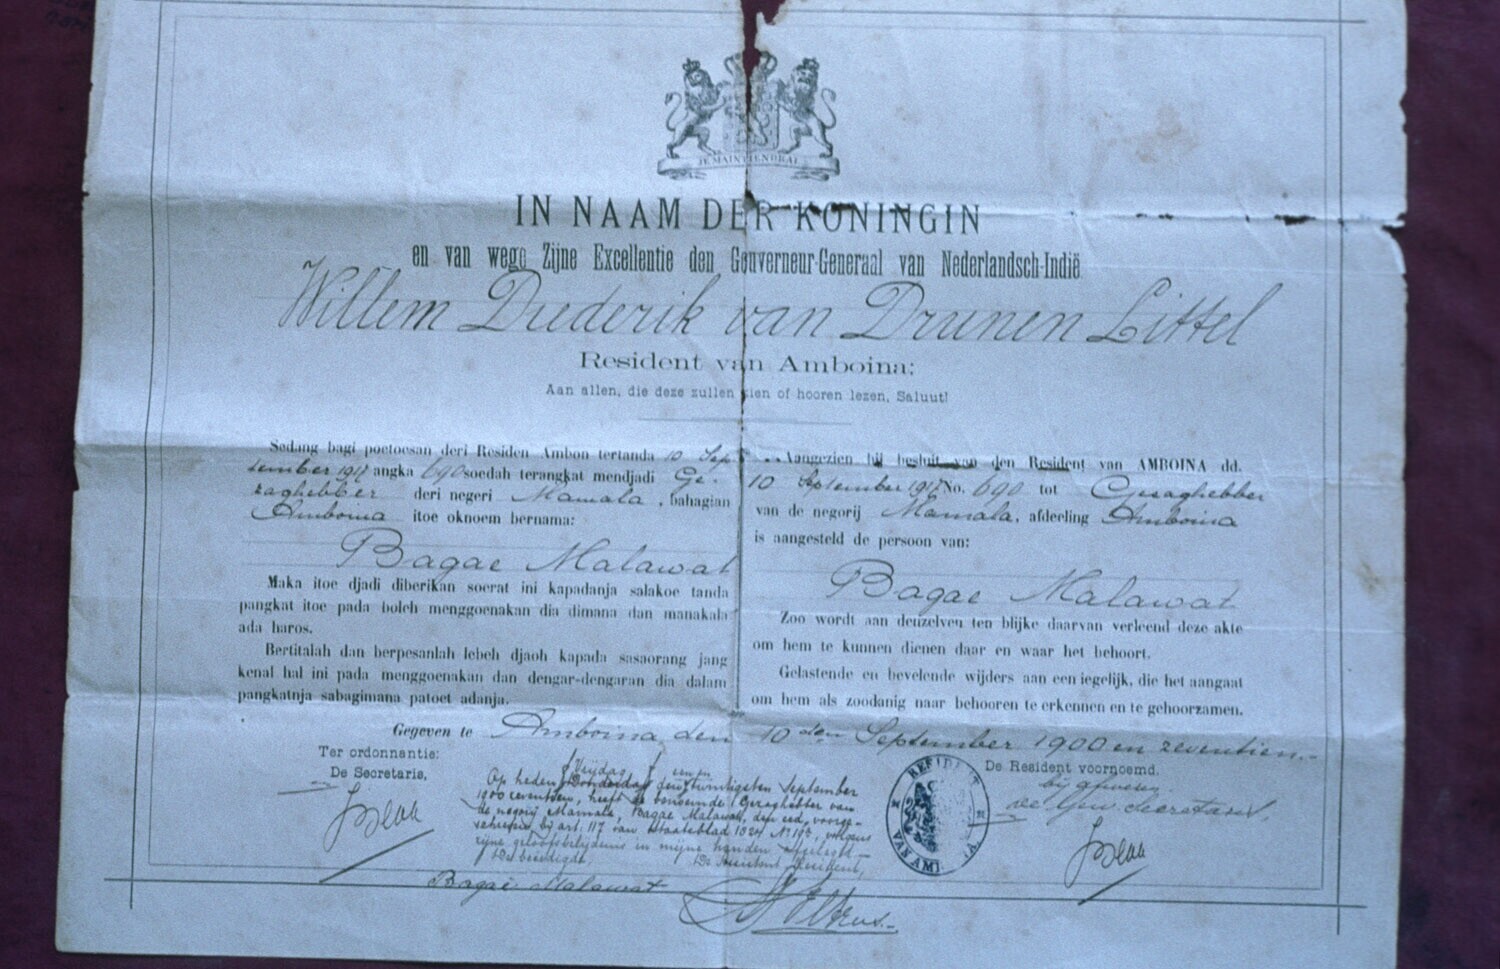 JE MAINTIENDRAI
IN NAAM DER KONINGIN
en van wege Zijne Excellentie den Gouverneur-Generaal van Nederlandsch-Indië
Willem Diederik van Drunen Littel
Resident van Amboina;
Aan allen, die deze zullen zien of hooren lezen, Saluut!
Sedang bagi poetoesan deri Residen Ambon tertanda 10 Sep
tember 1917 angka 690 soedah terangkat mendjadi Ge-
zaghebber deri negeri Mamala, bahagian
Amboina itoe oknoem bernama:
Bagae Malawat
Maka itoe djadi diberikan soerat ini kapadanja salakoe tanda
pangkat itoe pada boleh menggoenakan dia dimana dan manakala
ada haros.
Bertitalah dan berpesanlah lebeh djaoh kapada sasaorang jang
kenal hal ini pada menggoenakan dan dengar-dengaran dia dalam
pangkatnja sabagimana patoet adanja.
Aangezien bij besluit van den Resident van AMBOINA dd.
10 September 1917 No. 690 tot Gezaghebber
van de negorij Mamala, afdeeling Amboina
is aangesteld de persoon van:
Bagae Malawat
Zoo wordt aan denzelven ten blijke daarvan verleend deze akte
om hem te kunnen dienen daar en waar het behoort.
Gelastende en bevelende wijders aan een iegelijk, die het aangaat
om hem als zoodanig naar behooren te erkennen en te gehoorzamen.
Gegeven te Amboina, den 10 den September 1900 en zeventien.-
Ter ordonnantie:
De Secretaris,
De Resident voornoemd.
bij afwezen
de Gew. Secretaris,
Op heden Vrijdag Donderdag den een en twintigsten September
1900 zeventien, heeft de benoemde Gezaghebber van
de negorij Mamala, Bagae Malawat, den eed, voorge-
schreven bij art. 117 van Staatsblad 1824 No 19a, volgens
zijne geloofsbelijdenis in mijne handen afgelegd.-
De beëedigde, De Assistent Resident,
Bagae Malawat
RESIDENT
VAN AMBOINA